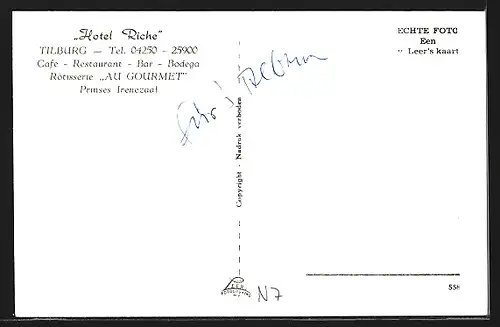 „Hotel Riche"
TILBURG — Tel. 04250 - 25900
Café - Restaurant - Bar - Bodega
Rôtisserie „AU GOURMET"
Prinses Irenezaal
ECHTE FOTO
Een
Leer's kaart
fürs Album
Copyright - Nadruk verboden
N7
558